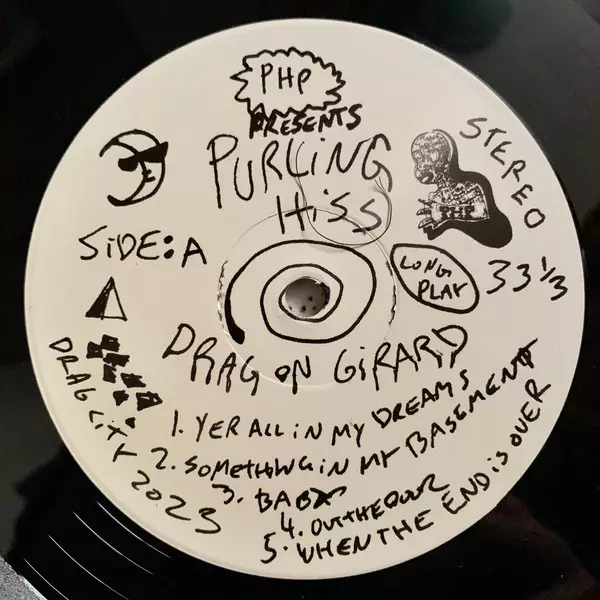 PHP
PRESENTS
PURLING
HISS
STEREO
PHP
SIDE: A
LONG
PLAY
33 1/3
DRAG ON GIRARD
DRAG CITY 2023
1. YER ALL IN MY DREAMS
2. SOMETHING IN MY BASEMENT
3. BABY
4. OUT THE DOOR
5. WHEN THE END IS OVER